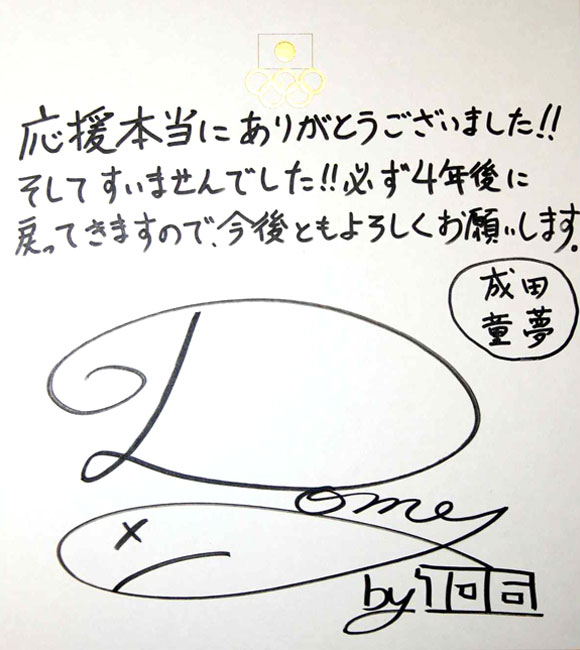 応援本当にありがとうございました!!
そしてすいませんでした!!必ず4年後に
戻ってきますので、今後ともよろしくお願いします。
成田
童夢
Dome
by